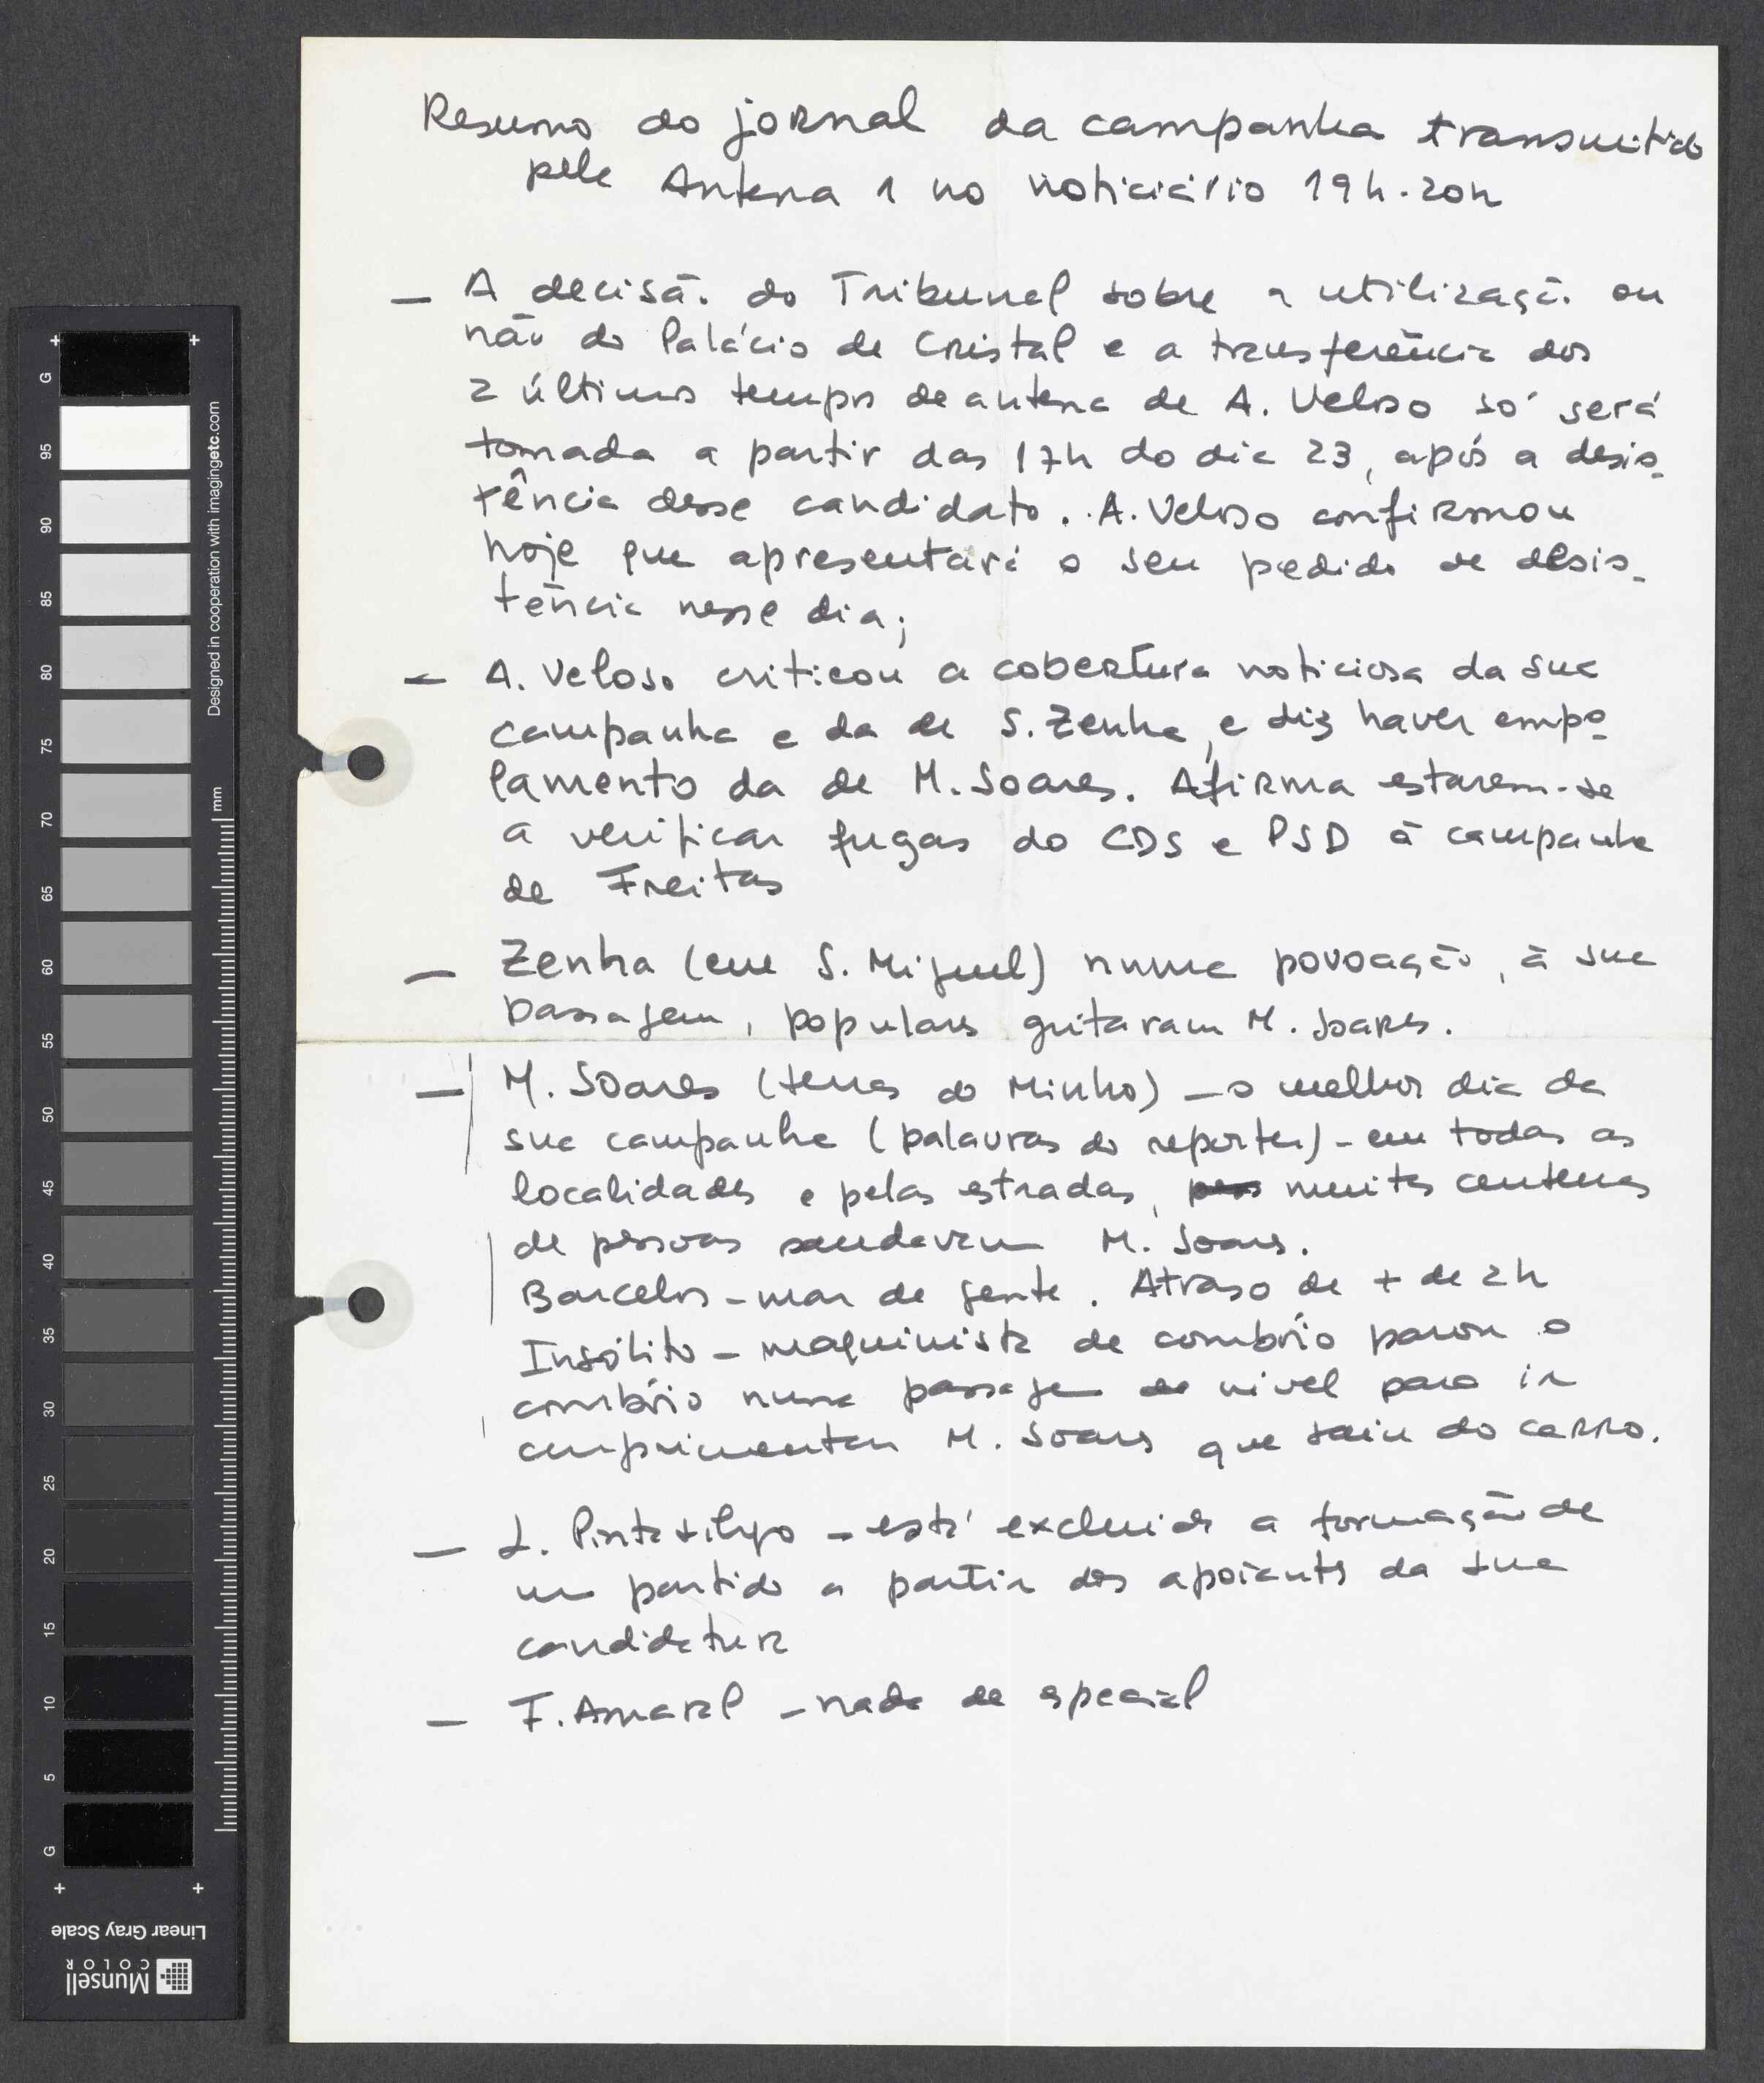 Resumo do jornal da campanha transmitido
pela Antena 1 no noticiário 19h-20h
– A decisão do Tribunal sobre a utilização ou
não do Palácio de Cristal e a transferência dos
2 últimos tempos de antena de A. Veloso só será
tomada a partir das 17h do dia 23, após a desis-
tência desse candidato. A. Veloso confirmou
hoje que apresentará o seu pedido de desis-
tência nesse dia;
– A. Veloso criticou a cobertura noticiosa da sua
campanha e da de S. Zenha, e diz haver empo-
lamento da de M. Soares. Afirma estarem-se
a verificar fugas do CDS e PSD à campanha
de Freitas
– Zenha (em S. Miguel) numa povoação, à sua
passagem, populares gritaram M. Soares.
– M. Soares (terras do Minho) – o melhor dia da
sua campanha (palavras do reporter) – em todas as
localidades e pelas estradas, muitas centenas
de pessoas saudavam M. Soares.
Barcelos – mar de gente. Atraso de + de 2h
Insólito – maquinista de combóio parou o
combóio numa passagem de nível para ir
cumprimentar M. Soares que saiu do carro.
– L. Pintasilgo – está excluida a formação de
um partido a partir dos apoiantes da sua
candidatura
– F. Amaral – nada de especial
G
95
90
85
80
75
70
65
60
55
50
45
40
35
30
25
20
15
10
5
G
mm
Designed in cooperation with imagingetc.com
Linear Gray Scale
Munsell
COLOR